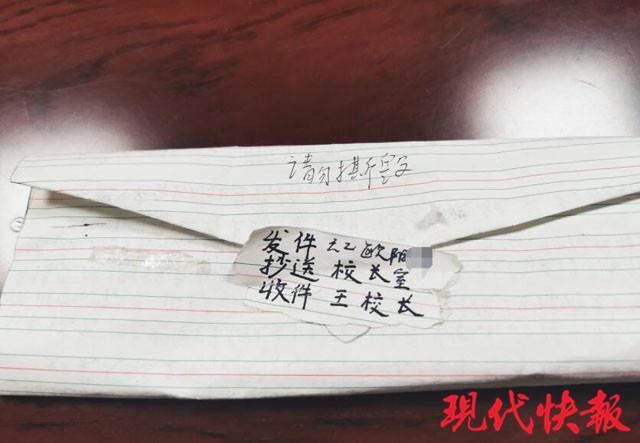 请勿撕毁
发件 六2 欧阳
抄送 校长室
收件 王校长
现代快報